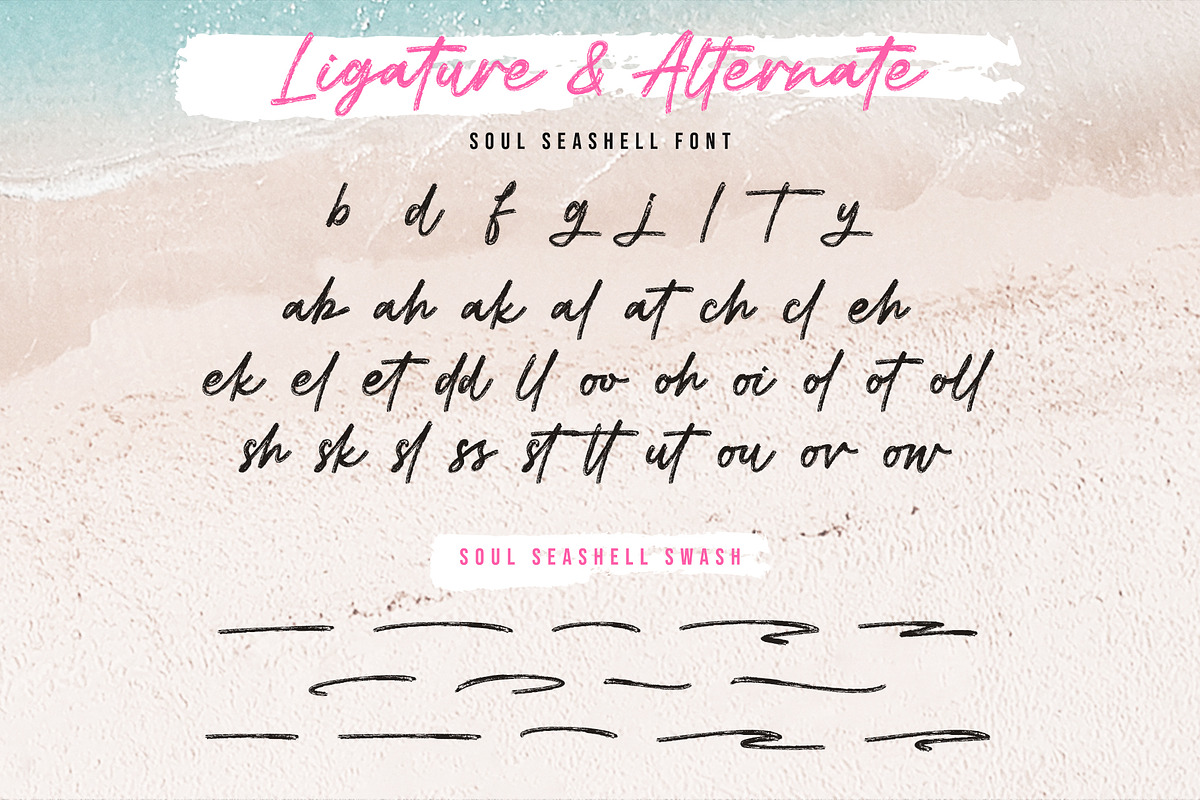 Ligature & Alternate
SOUL SEASHELL FONT
b d f g j l T y
ab ah ak al at ch cl eh
ek el et dd ll oo oh oi ol ot oll
sh sk sl ss st tt ut ou or ow
SOUL SEASHELL SWASH